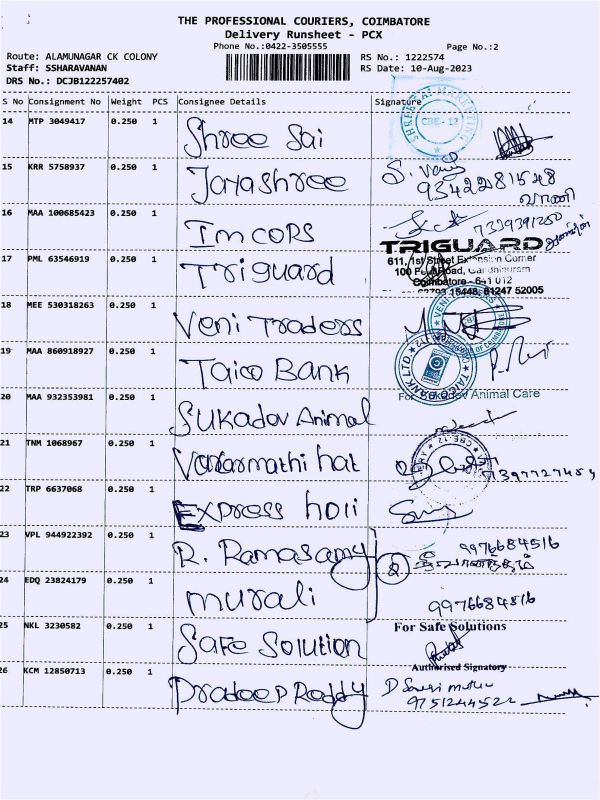 THE PROFESSIONAL COURIERS, COIMBATORE
Delivery Runsheet - PCX
Phone No.:0422-3505555 Page No.:2
Route: ALAMUNAGAR CK COLONY RS No.: 1222574
Staff: SSHARAVANAN RS Date: 10-Aug-2023
DRS No.: DCJB122257402
S No Consignment No Weight PCS Consignee Details Signature
14 MTP 3049417 0.250 1 Shree Sai CBE-12
15 KRR 5758937 0.250 1 Jayashree
வாணி
16 MAA 100685423 0.250 1 Imcops 7339391250
TRIGUARD
611, 1st Street Extension Corner
17 PML 63546919 0.250 1 Triguard
Coimbatore - 641 012
15448, 81247 52005
18 MEE 530318263 0.250 1 Veni Traders
19 MAA 860918927 0.250 1 Taico Bank
For Sukadev Animal Care
20 MAA 932353981 0.250 1 Sukadov Animal
21 TNM 1068967 0.250 1 hat
22 TRP 6637068 0.250 1 Express holi
23 VPL 944922392 0.250 1 R. Ramasamy 2 9976684516
24 EDQ 23824179 0.250 1 murali 9976684516
For Safe Solutions
25 NKL 3230582 0.250 1 Safe Solution
Authorised Signatory
26 KCM 12850713 0.250 1 Pradeep Reddy
9751244522